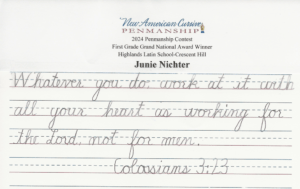 New American Cursive
PENMANSHIP
2024 Penmanship Contest
First Grade Grand National Award Winner
Highlands Latin School-Crescent Hill
Junie Nichter
Whatever you do, work at it with
all your heart as working for
the Lord, not for men.
Colossians 3:23